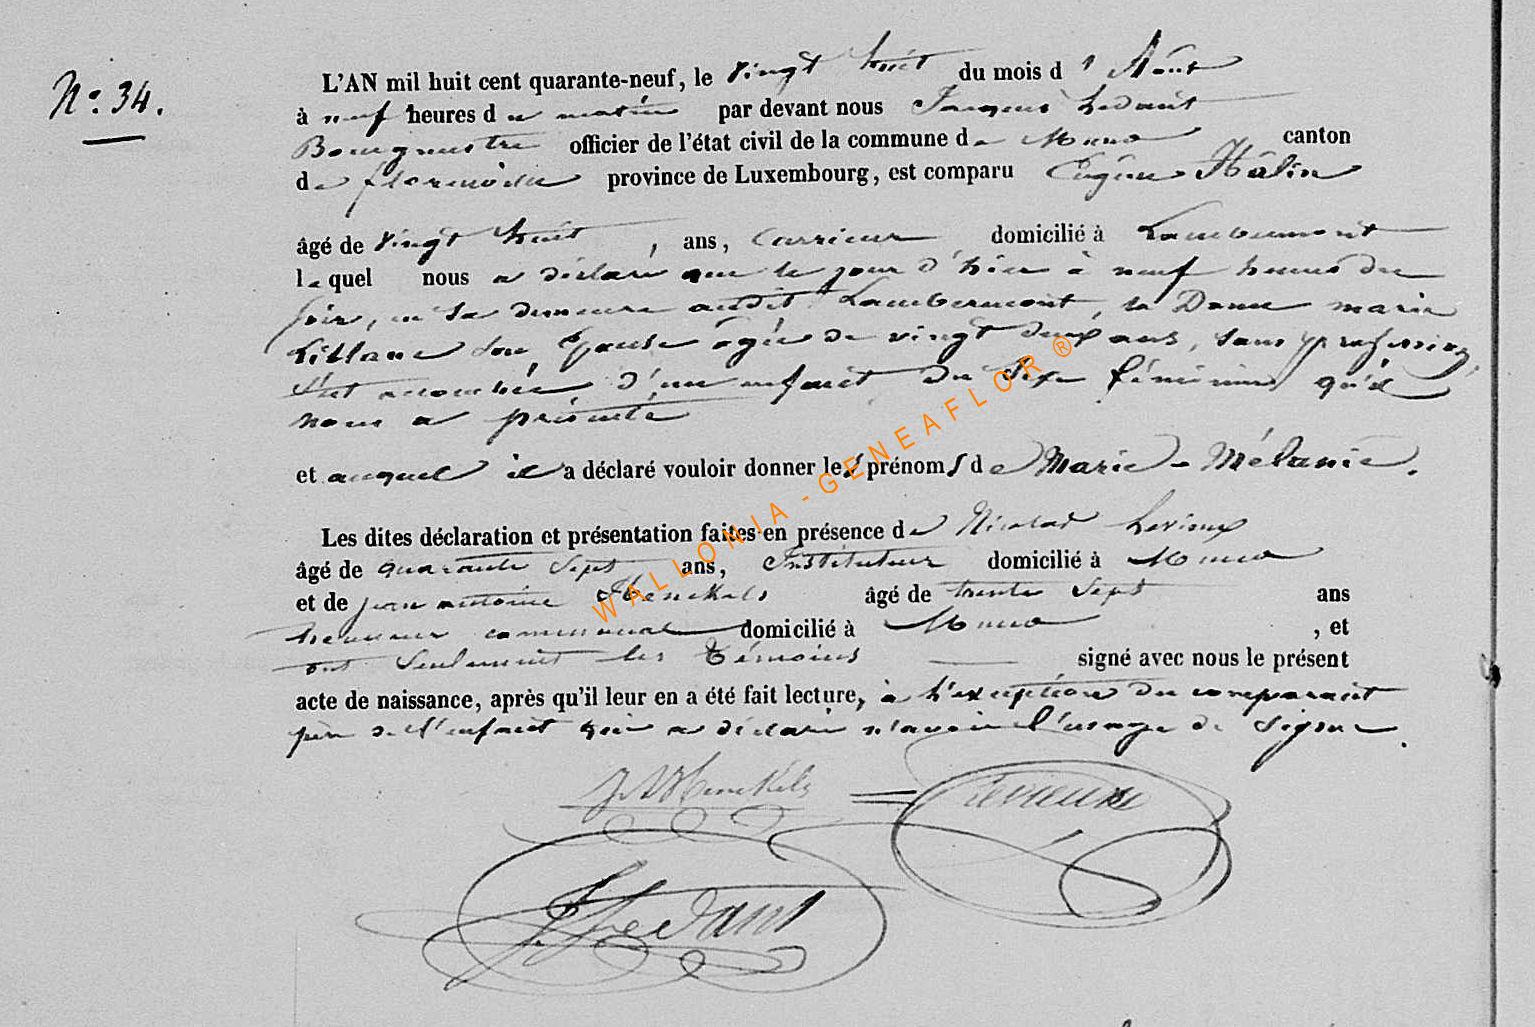 N.º 34.
L'AN mil huit cent quarante-neuf, le vingt huit du mois d'Août
à neuf heures du matin par devant nous Jacques Ledant
Bourgmestre officier de l'état civil de la commune de Muno canton
de florenville province de Luxembourg, est comparu Eugéne Hâlin
âgé de vingt huit, ans, Carrieur domicilié à Lambermont
lequel nous a déclaré que le jour d'hier à neuf heures du
soir, en sa demeure audit Lambermont, la Dame marie
son Epouse âgée de vingt deux ans, sans profession,
s'est accouchée d'un enfant du Sexe féminin qu'il
nous a présenté
et auquel il a déclaré vouloir donner les prénoms de Marie-Mélanie.
Les dites déclaration et présentation faites en présence de Nicolas Levieux
âgé de quarante Sept ans, Instituteur domicilié à Muno
et de jean antoine Henckels âgé de trente Sept ans
receveur communal domicilié à Muno, et
ont Seulement les témoins signé avec nous le présent
acte de naissance, après qu'il leur en a été fait lecture, à l'exception du comparant
père de l'enfant qui a déclaré n'avoir l'usage de signer.
J A Henckels Levieux
J Ledant
WALLONIA-GENEAFLOR ®